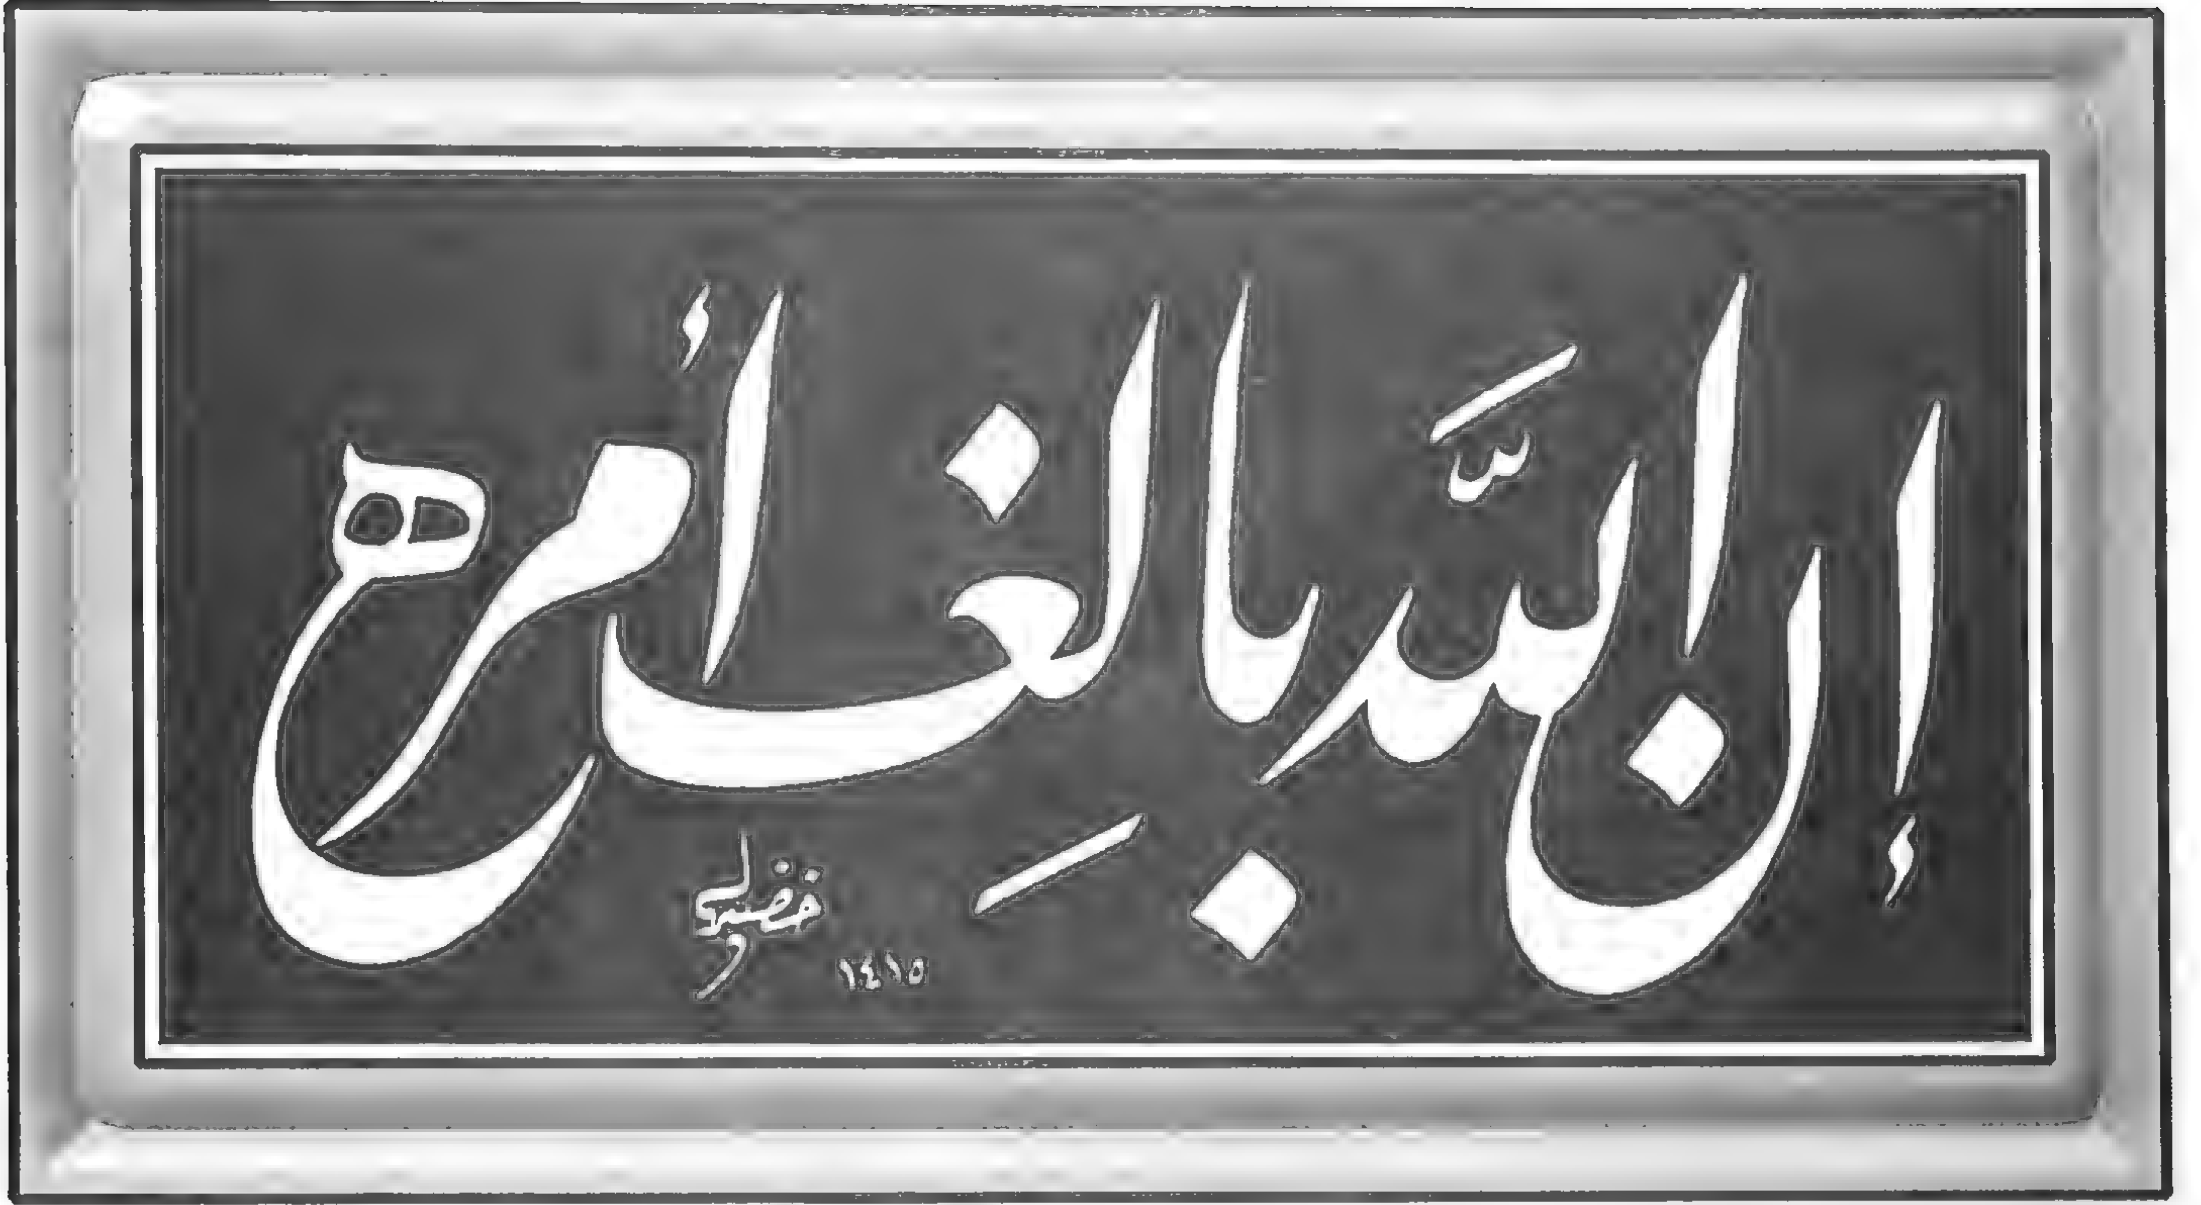 إن الله بالغ أمره
١٤١٥